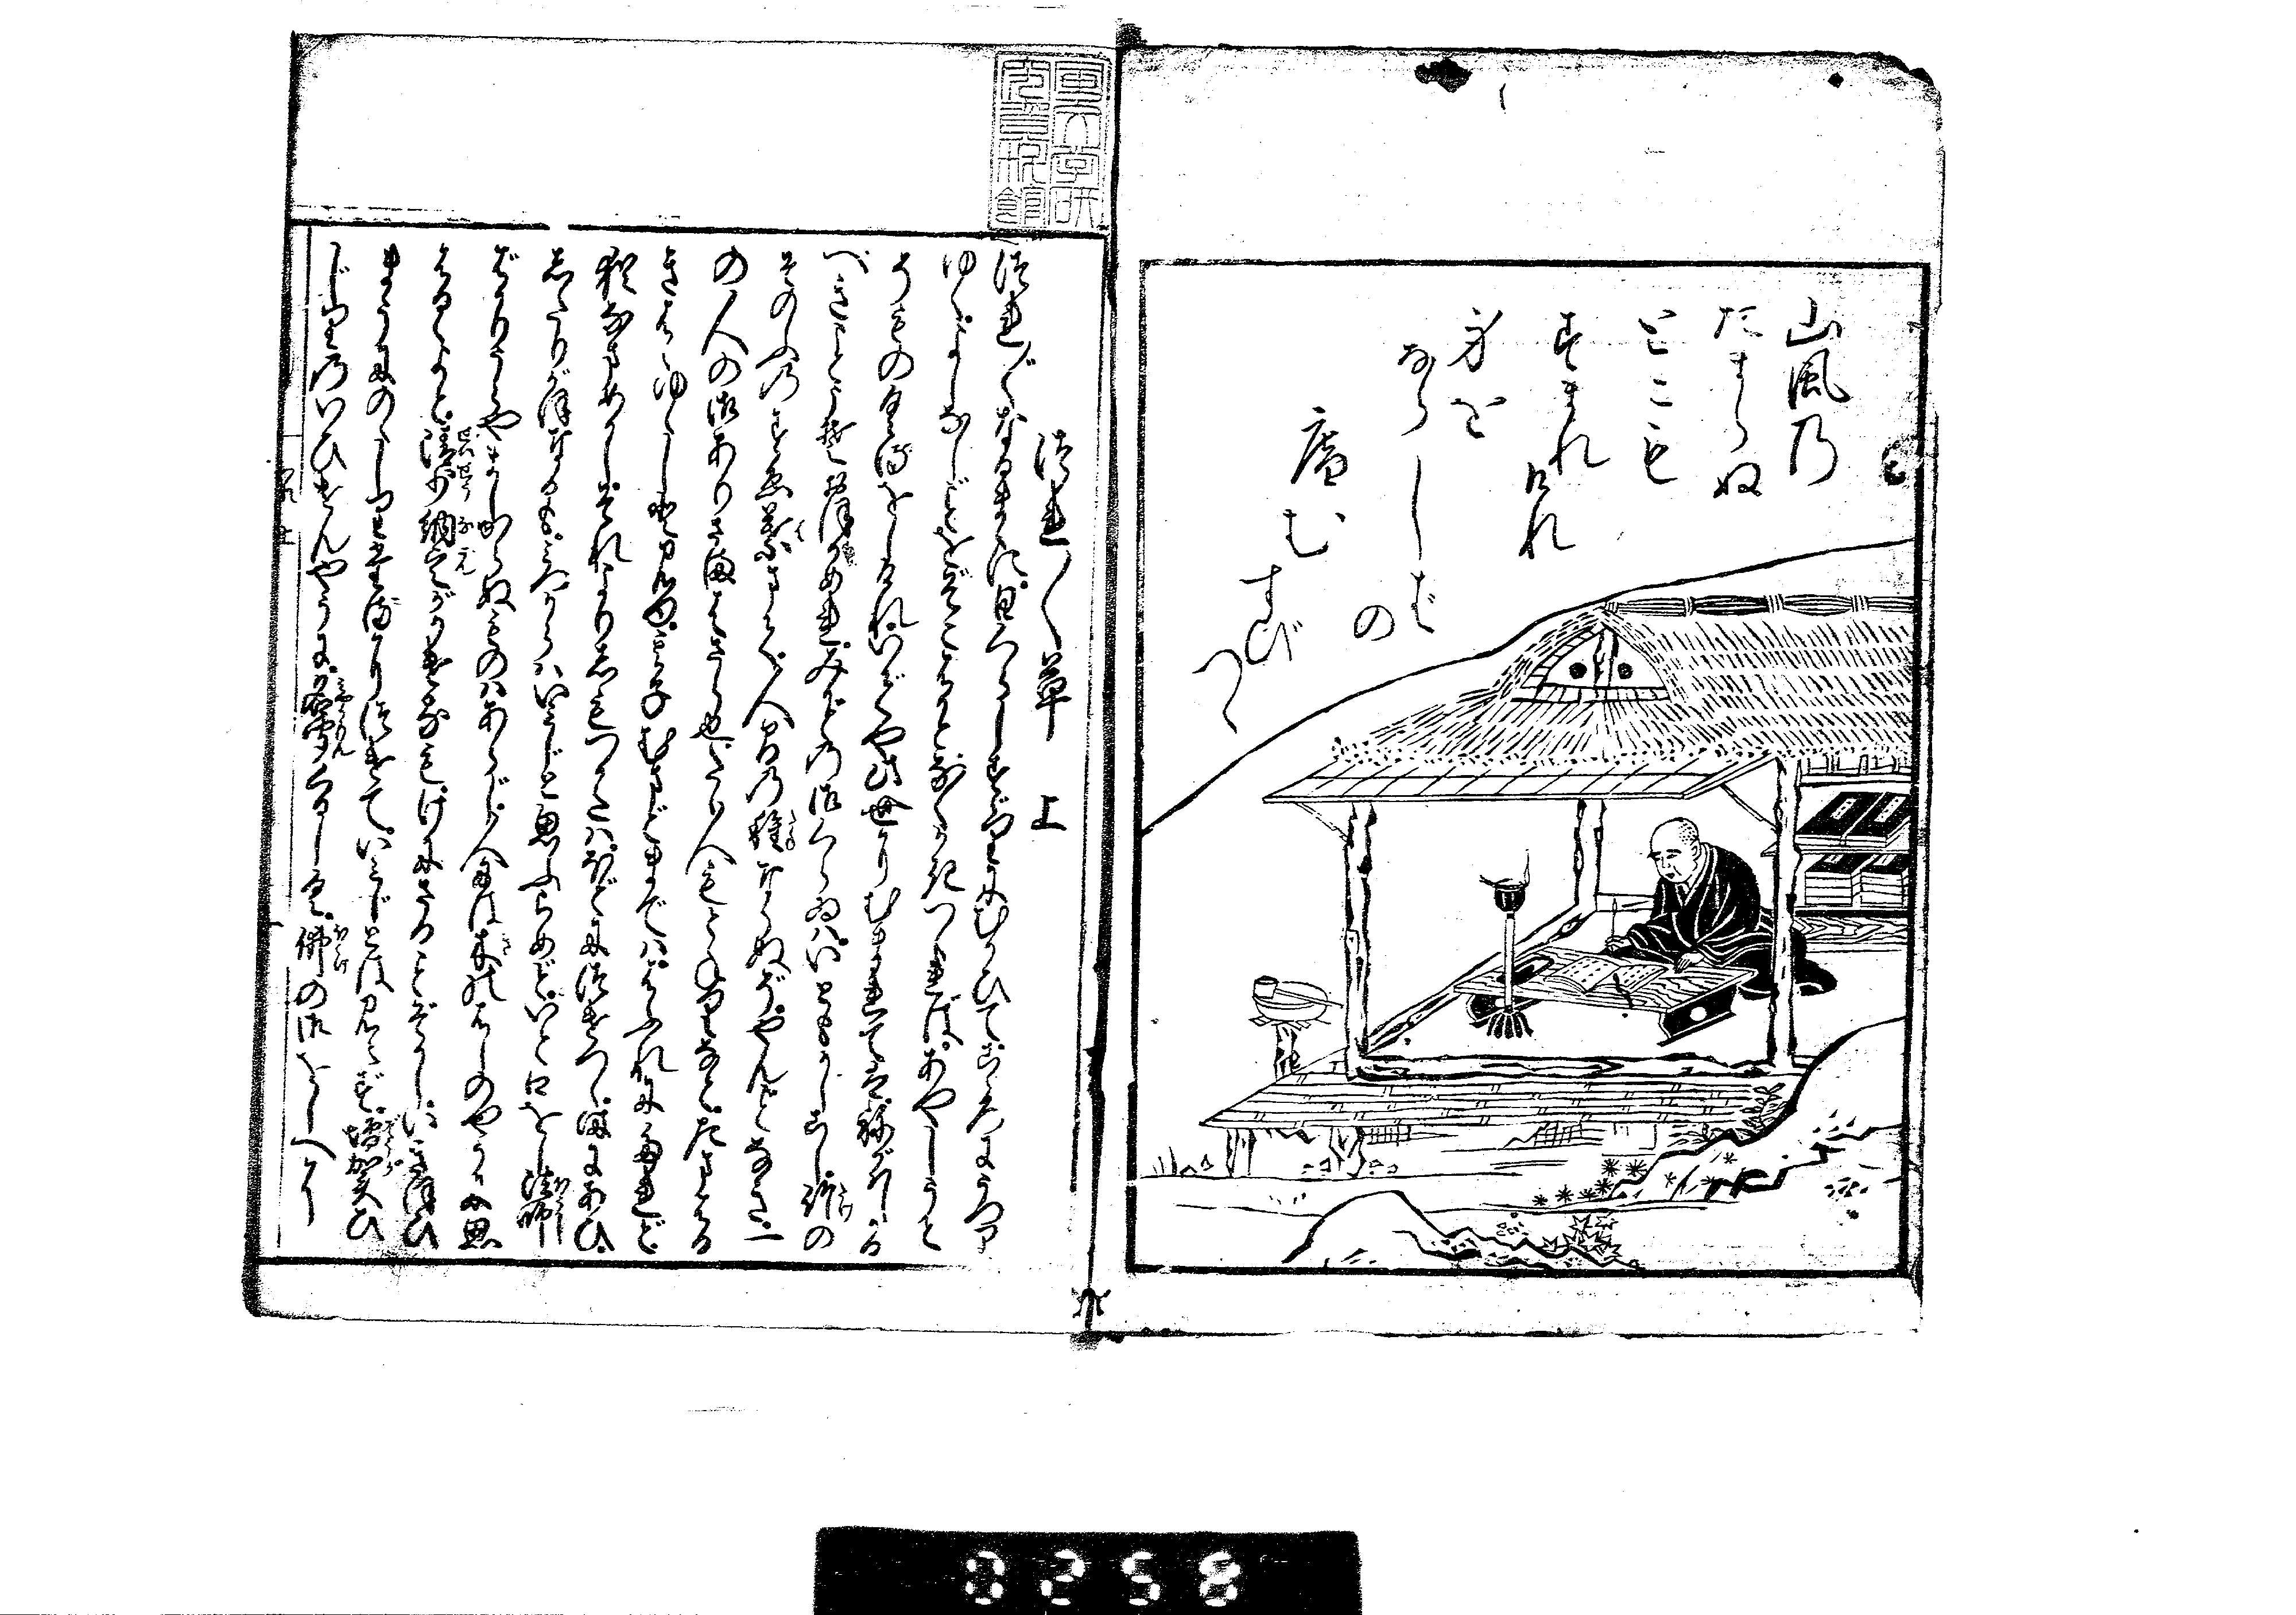 山風乃
たまらぬ
とこも
すまれけれ
身を
ならしばの
庵むすび
つゝ
つれ〳〵草 上
つれ〴〵なるまゝに。日くらしすゞりにむかひて。こゝろにうつり
ゆくよしなしごとをそこはかとなくかきつくれば。あやしうこ
そものぐるをしけれ。いでや此世にむまれては。ねがはしかる
べきことこそおほかめれ。みかどの御くらゐは。いともかしこし。竹の
そのふのすゑ葉まで。人間の種ならぬぞ。やんごとなき。一
の人の御ありさまはさら也。たゞ人もとねりなど。たまはる
きはゝゆゝしと見ゆ。其子むまごまでは。はふれにたれど
猶なまめかし。それよりしもつかたは。ほどにつけつゝ時にあひ。
したりがほなるも。みづからハいみじと思ふらめど。いと口をし。法師
ばかりうらやましからぬものハあらじ。人には木のはしのやうに思
はるゝよと。清少納言がかけるも。げにさることぞかし。いきほひ
まうにのゝしりたるにつけて。いみじとは見えず。増賀ひ
じりのいひけんやうに。名聞くるしく。佛の御をしへに
0258